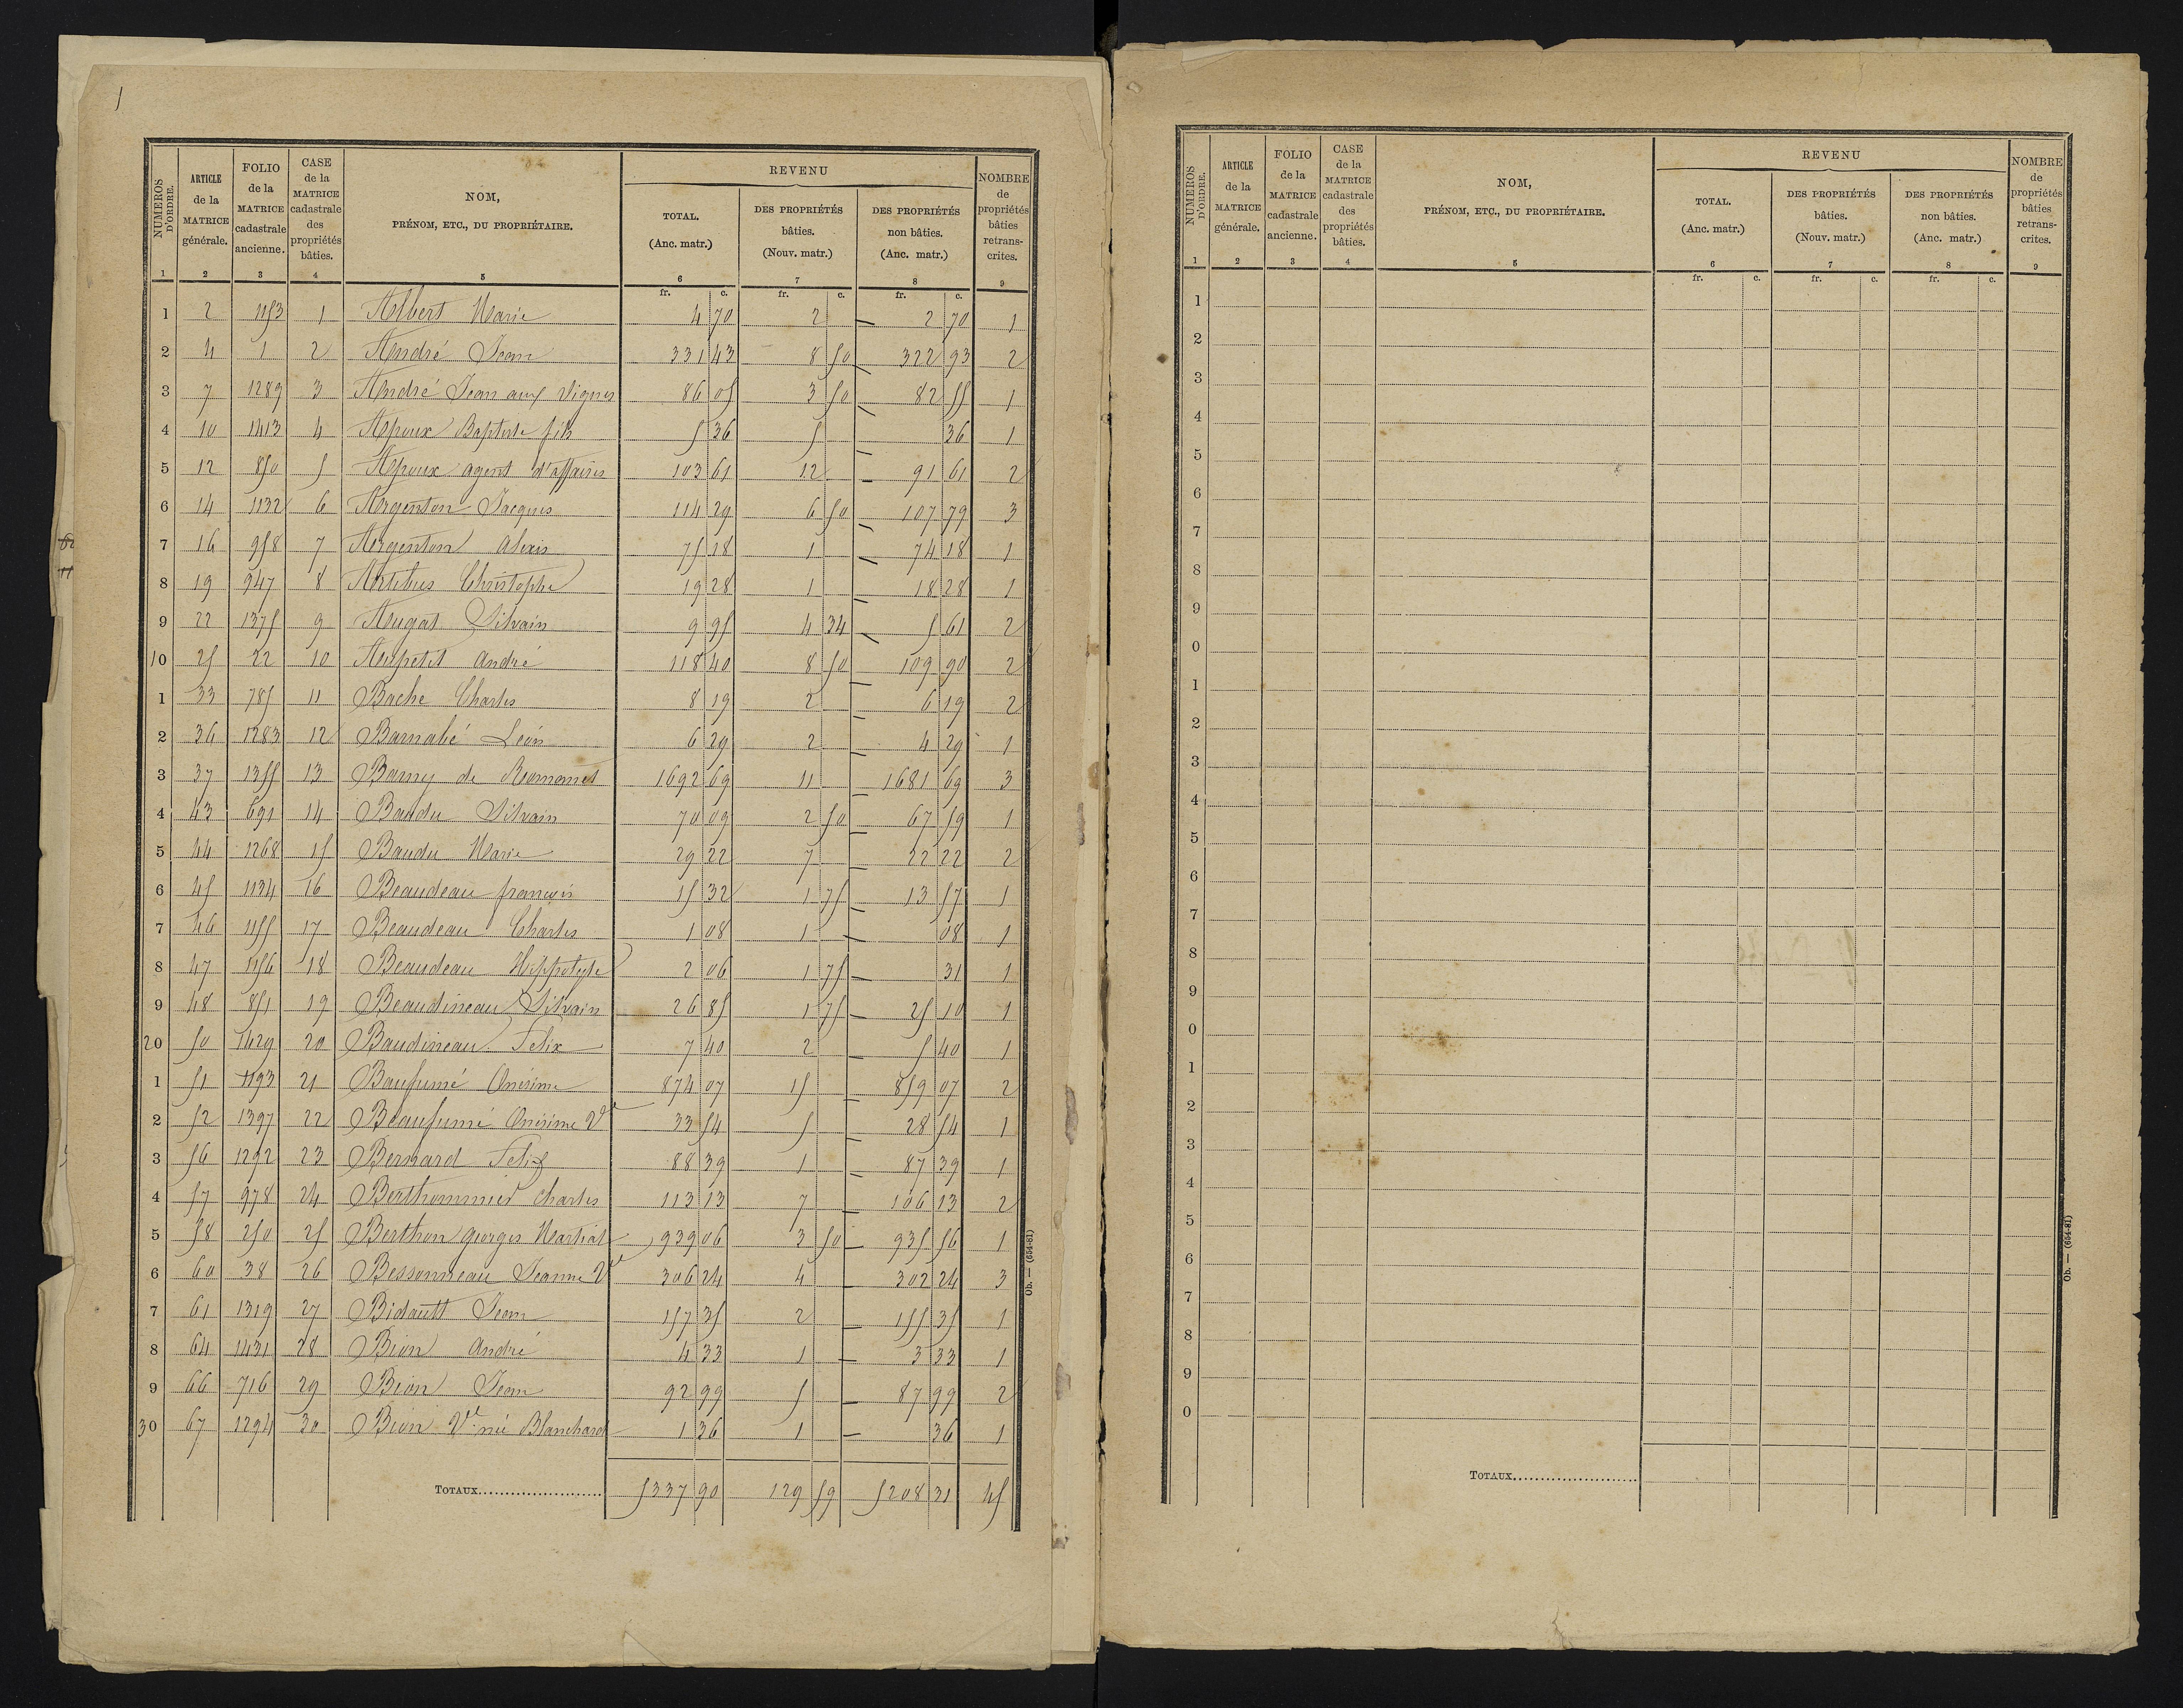 1
NUMEROS D'ORDRE. | ARTICLE de la MATRICE générale. | FOLIO de la MATRICE cadastrale ancienne. | CASE de la MATRICE cadastrale des propriétés bâties. | NOM, PRÉNOM, ETC., DU PROPRIÉTAIRE. | REVENU | NOMBRE de propriétés bâties retranscrites.
TOTAL. (Anc. matr.) | DES PROPRIÉTÉS bâties. (Nouv. matr.) | DES PROPRIÉTÉS non bâties. (Anc. matr.)
1 2 3 4 5 6 7 8 9
fr. c. fr. c. fr. c.
1 2 1153 1 Albert Marie 4 70 2 — 2 70 1
2 4 1 2 André Jean 331 43 8 50 — 322 93 2
3 7 1289 3 André Jean aux Vignes 86 05 3 50 — 82 55 1
4 10 1413 4 Apoux Baptiste fils 5 36 5 — 36 1
5 12 850 5 Apoux agent d'affaires 103 61 12 — 91 61 2
6 14 1132 6 Argenton Jacques 114 29 6 50 — 107 79 3
7 16 958 7 Argenton Alexis 75 18 1 — 74 18 1
8 19 947 8 Artibus Christophe 19 28 1 — 18 28 1
9 22 1375 9 Augat Silvain 9 95 4 34 — 5 61 2
10 25 22 10 Aupetit André 118 40 8 50 — 109 90 2
1 33 785 11 Bache Charles 8 19 2 — 6 19 2
2 36 1283 12 Barnabé Léon 6 29 2 — 4 29 1
3 37 1355 13 Barny de Romanet 1692 69 11 — 1681 69 3
4 43 691 14 Baudu Silvain 70 09 2 50 — 67 59 1
5 44 1268 15 Baudu Marie 29 22 7 — 22 22 2
6 45 1134 16 Beaudeau françois 15 32 1 75 — 13 57 1
7 46 1155 17 Beaudeau Charles 1 08 1 — 08 1
8 47 1156 18 Beaudeau Hippolyte 2 06 1 75 — 31 1
9 48 851 19 Beaudineau Silvain 26 85 1 75 — 25 10 1
20 50 1429 20 Baudineau Felix 7 40 2 — 5 40 1
1 51 1193 21 Baufumé Onésime 874 07 15 — 859 07 2
2 52 1397 22 Beaufumé Onésime Ve 33 54 5 — 28 54 1
3 56 1292 23 Bernard Felix 88 39 1 — 87 39 1
4 57 978 24 Berthommier Charles 113 13 7 — 106 13 2
5 58 250 25 Berthon georges Martial 939 06 3 50 — 935 56 1
6 60 38 26 Bessonneau Jeanne Ve 306 24 4 — 302 24 3
7 61 1319 27 Bidault Jean 157 35 2 — 155 35 1
8 64 1431 28 Bion André 4 33 1 — 3 33 1
9 66 716 29 Bion Jean 92 99 5 — 87 99 2
30 67 1294 30 Bion Ve née Blanchard 1 36 1 — 36 1
TOTAUX...................... 5337 90 129 59 5208 31 45
Ob. — (654-81)
NUMEROS D'ORDRE. | ARTICLE de la MATRICE générale. | FOLIO de la MATRICE cadastrale ancienne. | CASE de la MATRICE cadastrale des propriétés bâties. | NOM, PRÉNOM, ETC., DU PROPRIÉTAIRE. | REVENU | NOMBRE de propriétés bâties retranscrites.
TOTAL. (Anc. matr.) | DES PROPRIÉTÉS bâties. (Nouv. matr.) | DES PROPRIÉTÉS non bâties. (Anc. matr.)
1 2 3 4 5 6 7 8 9
fr. c. fr. c. fr. c.
1
2
3
4
5
6
7
8
9
0
1
2
3
4
5
6
7
8
9
0
1
2
3
4
5
6
7
8
9
0
TOTAUX......................
Ob. — (654-81)